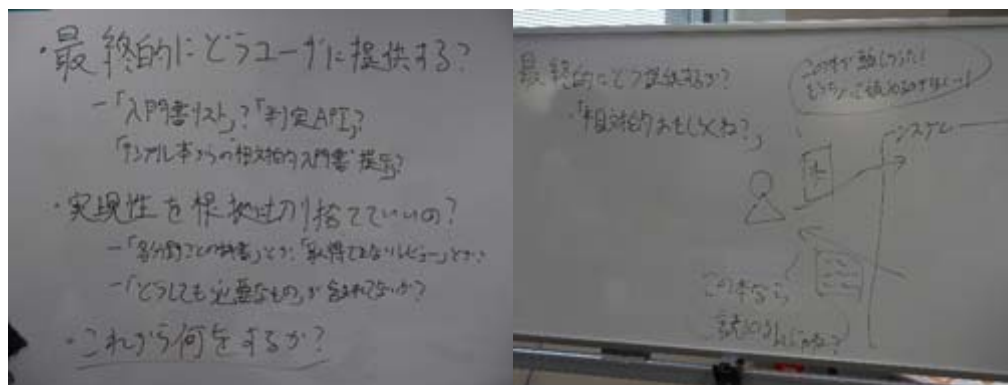 ・最終的にどうユーザに提供する？
－「入門書リスト」？「判定API」？
「サンプル本からの"相対的入門書"提示」？
・実現性を根拠に切り捨てていいの？
－「各分野ごとの辞書」とか、「取得できないレビュー」とか…
－「どうしても必要なもの」が含まれてないか？
・これから何をするか？
最終的にどう提供するか？
・「相対的おもしろくね？」
この本が難しかった！
システム
本
この本なら
読めるんじゃね？